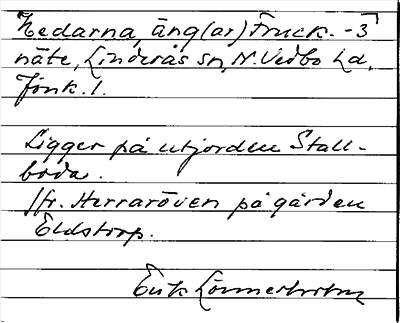 Hedarna, äng(ar) Fruck. -3
näte, Linderås sn, N. Vedbo hd,
Jönk. l.
Ligger på utjorden Stall-
boda.
Jfr. Herraröven på gården
Eldstorp.
Erik Lönnerholm